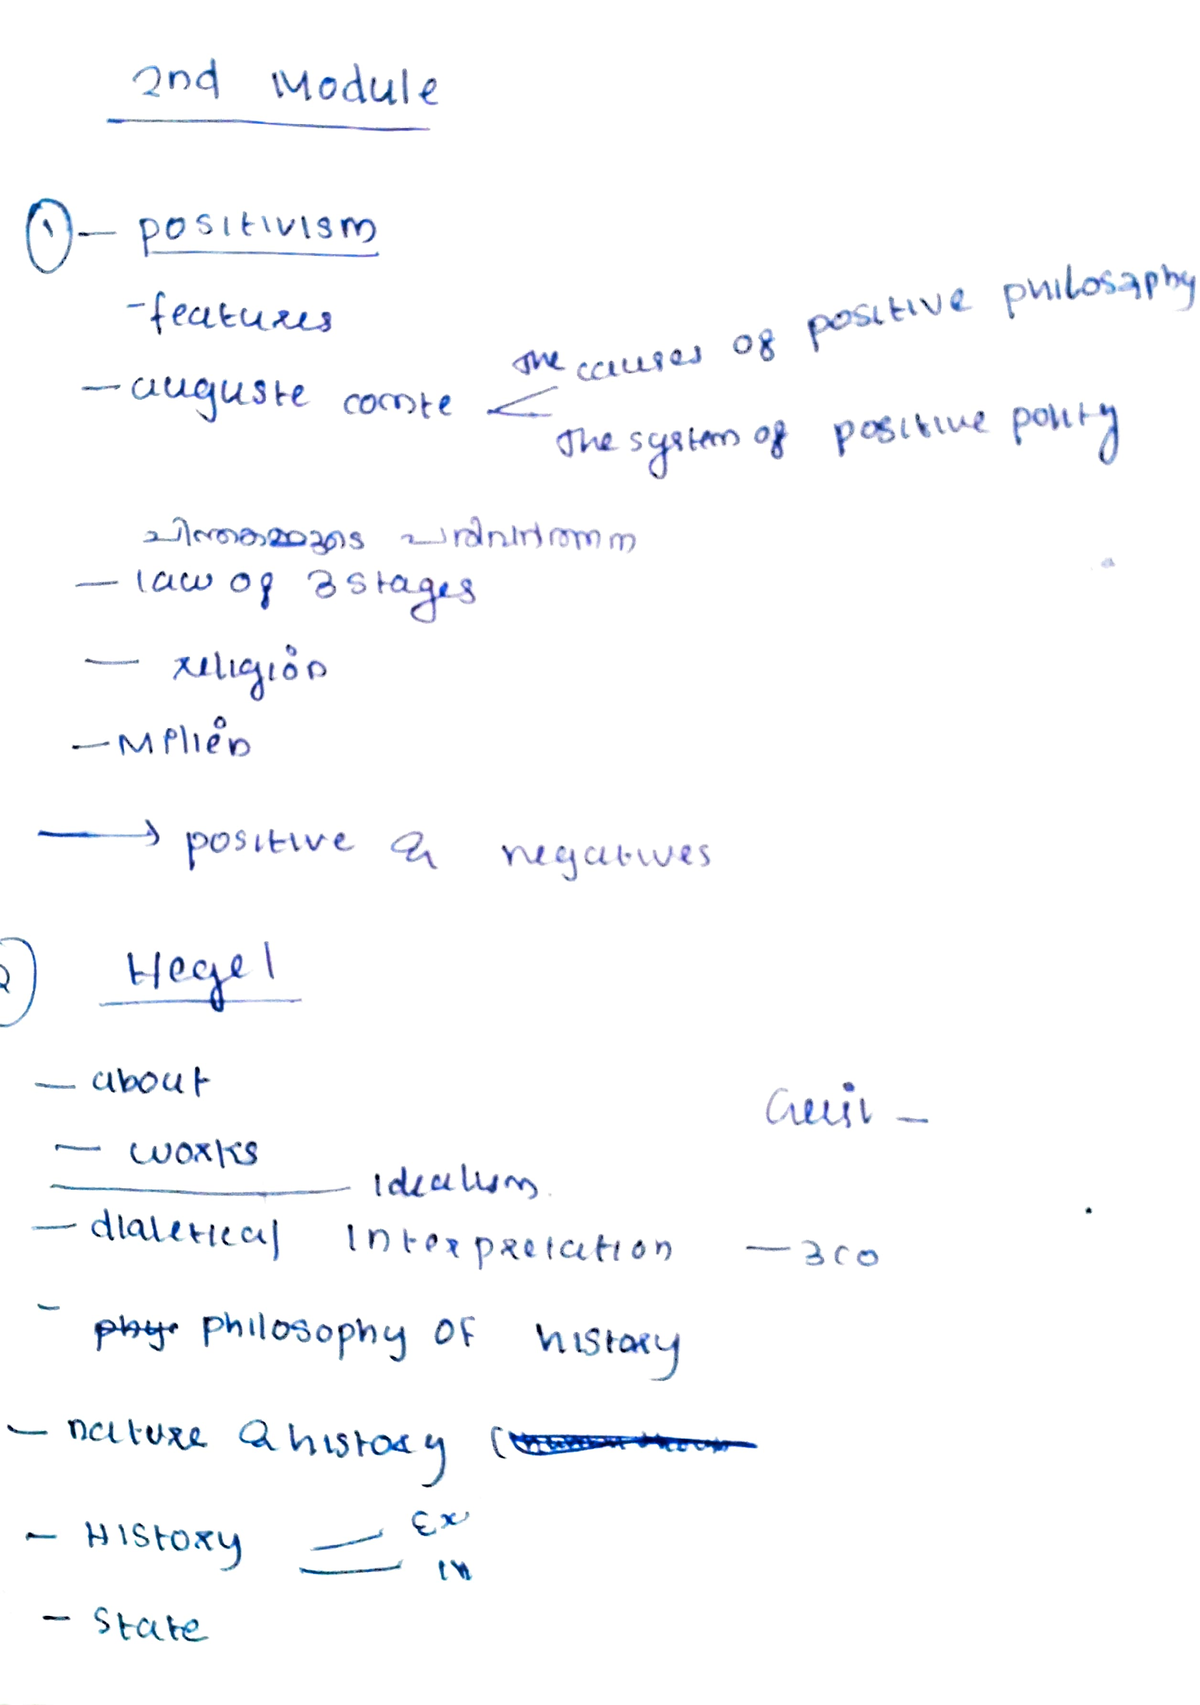 2nd Module
① — positivism
- features
— auguste comte < The causes of positive philosophy
The system of positive polity
ചിന്തകളുടെ പരിവർത്തന
— law of 3 stages
— religion
—
→ positive & negatives
2 Hegel
— about
— works
idealism
— dialetical Interpretation — 3 co
- philosophy of history
— nature & history (
- History Ex
In
- state